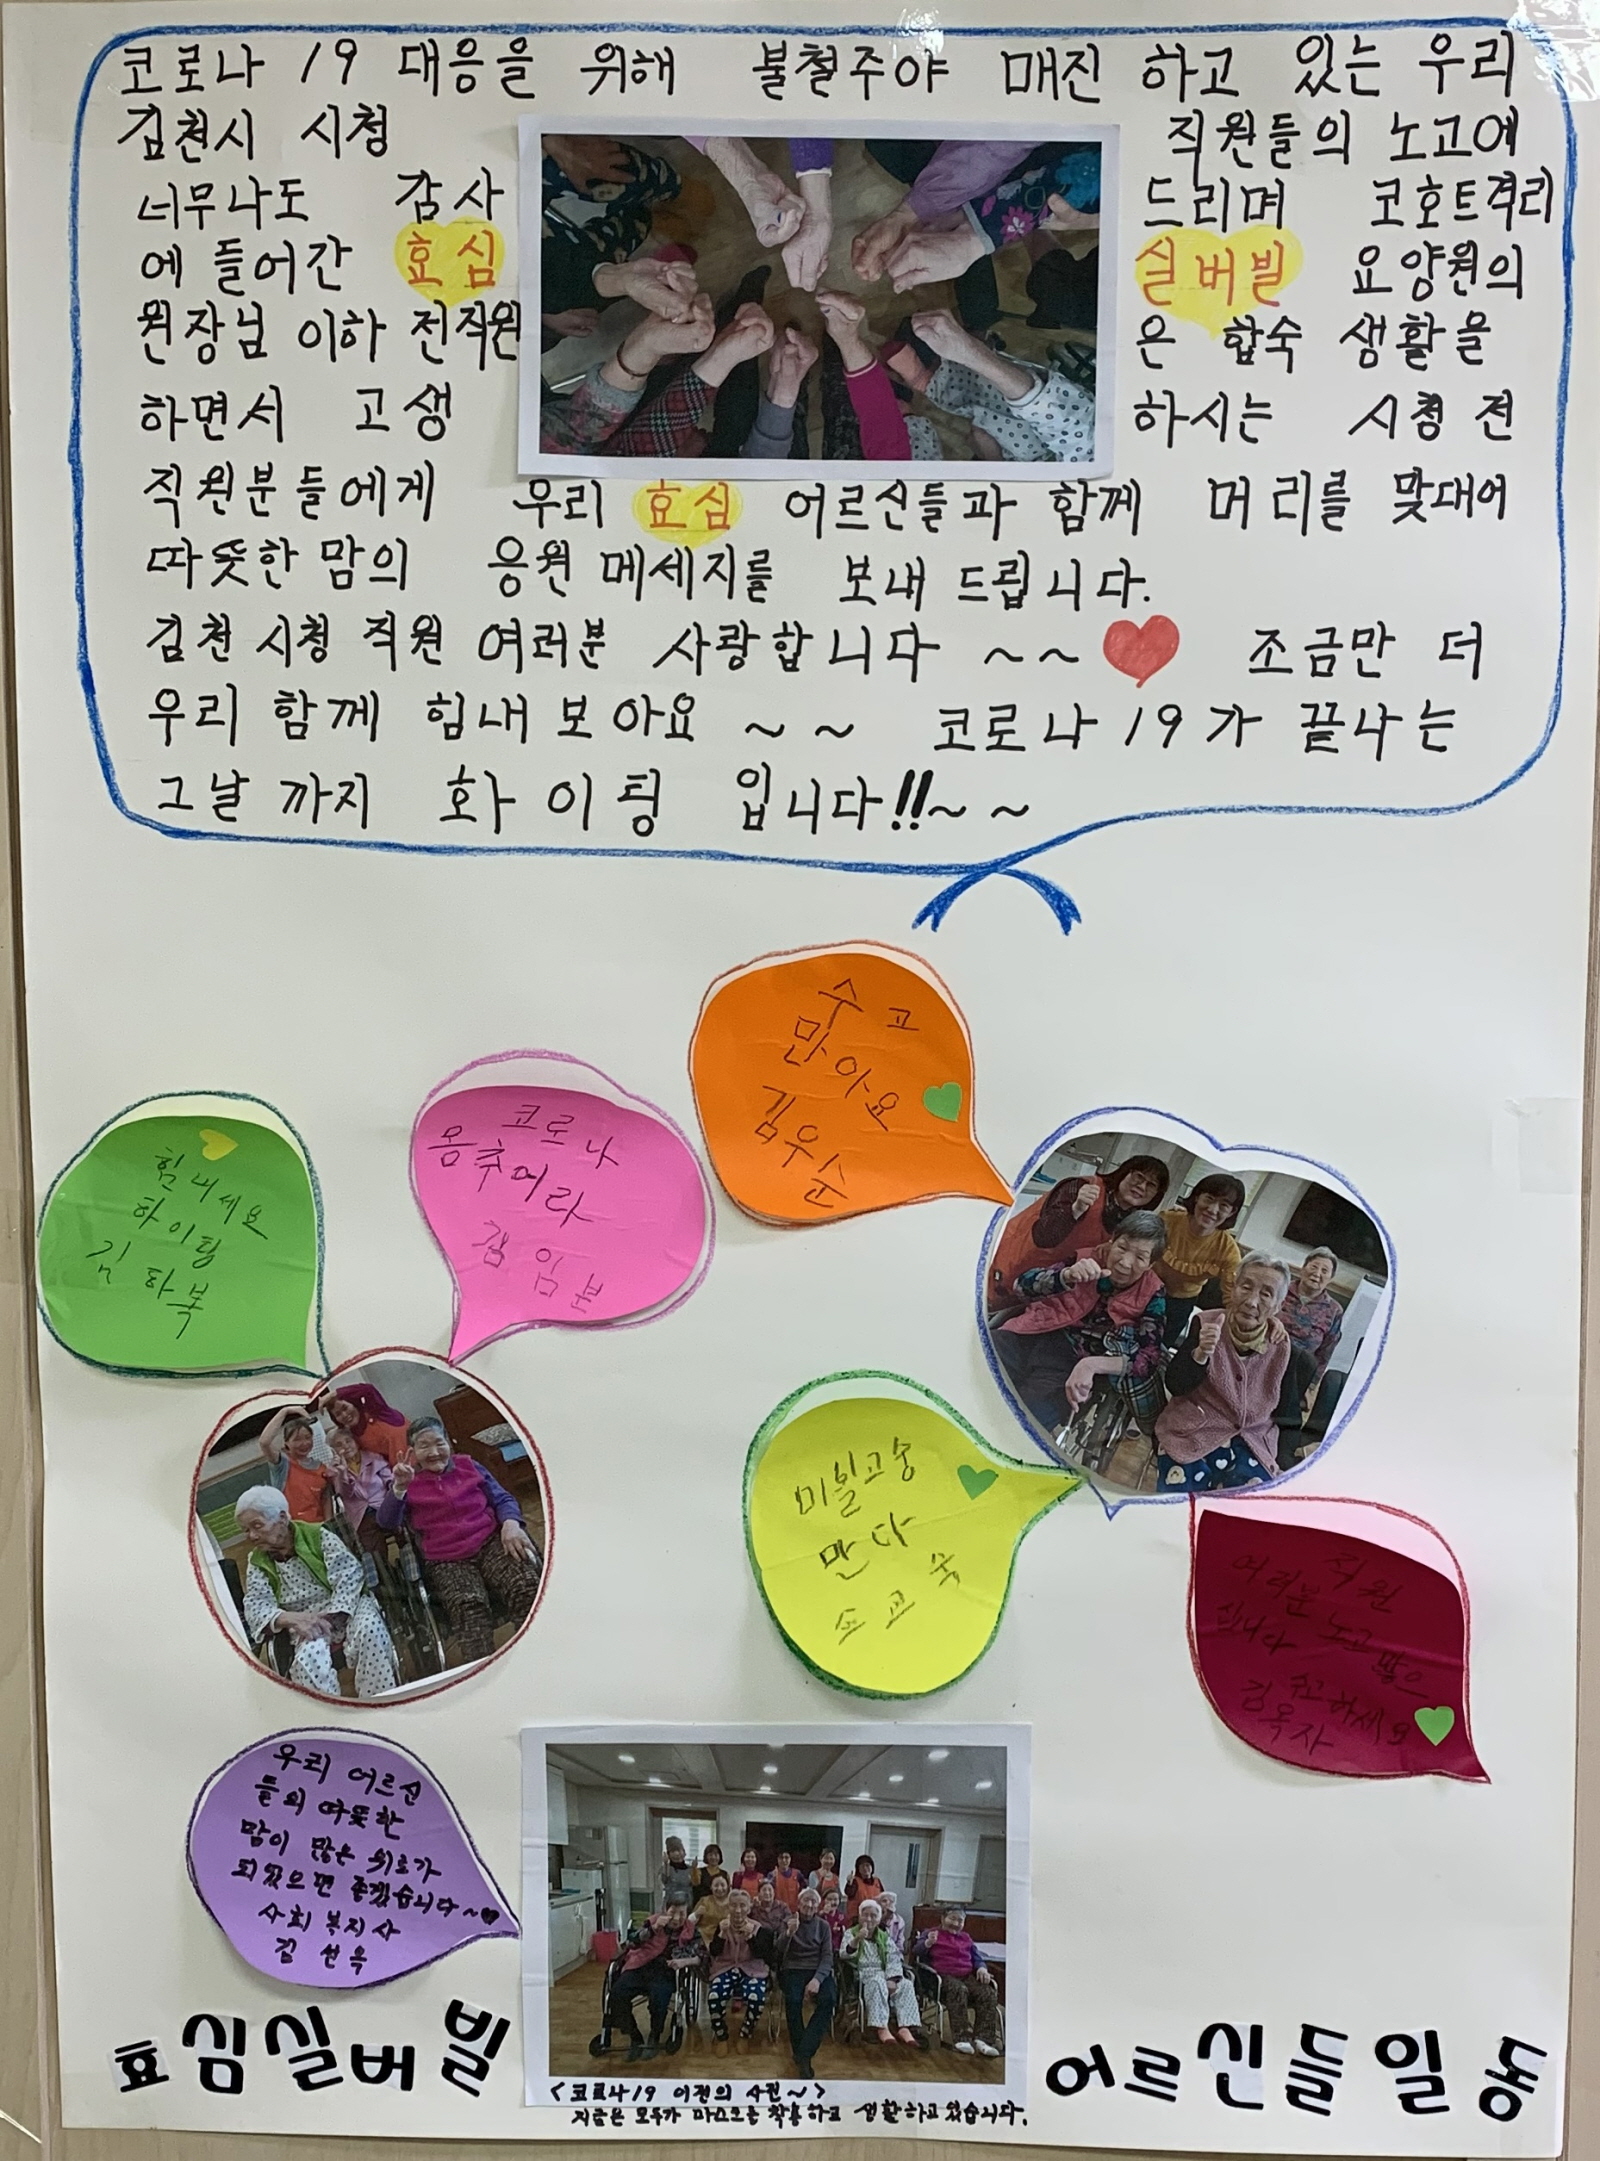 코로나 19 대응을 위해 불철주야 매진 하고 있는 우리
김천시 시청 직원들의 노고에
너무나도 감사 드리며 코호트격리
에 들어간 효심 실버빌 요양원의
원장님 이하 전직원 은 합숙 생활을
하면서 고생 하시는 시청 전
직원분들에게 우리 효심 어르신들과 함께 머리를 맞대어
따뜻한 맘의 응원 메세지를 보내 드립니다.
김천 시청 직원 여러분 사랑합니다 ~~ 조금만 더
우리 함께 힘내 보아요 ~~ 코로나 19가 끝나는
그날 까지 화이팅 입니다!!~~
수고
만아요
김우순
코로나
몸추어라
김임분
힘내세요
하이팅
김 하복
만다
직원
여러분 노고 많으
십니다
김옥자
우리 어르신
들의 따뜻한
맘이 많은 위로가
되었으면 좋겠습니다~
사회복지사
김선옥
효심실버빌 어르신들일동
<코로나19 이전의 사진~>
지금은 모두가 마스크를 착용하고 생활하고 있습니다.